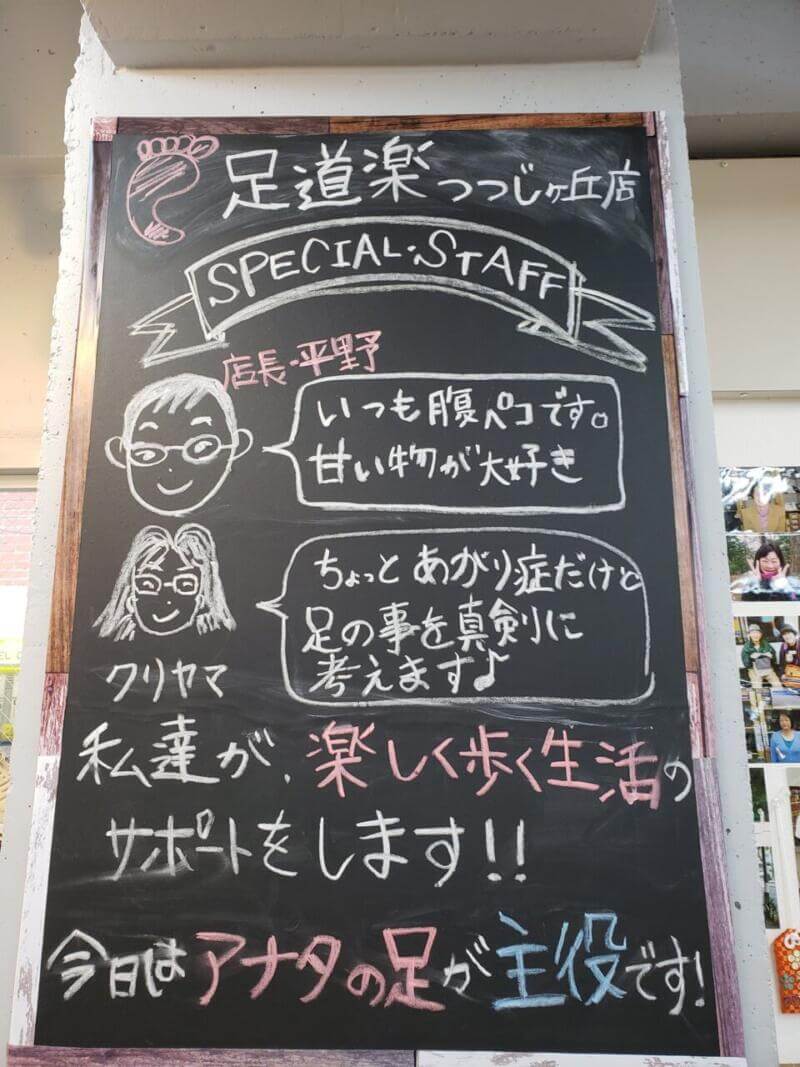 足道楽つつじヶ丘店
SPECIAL・STAFF
店長・平野
いつも腹ペコです。
甘い物が大好き
ちょっとあがり症だけど
足の事を真剣に
考えます♪
クリヤマ
私達が、楽しく歩く生活の
サポートをします!!
今日はアナタの足が主役です!